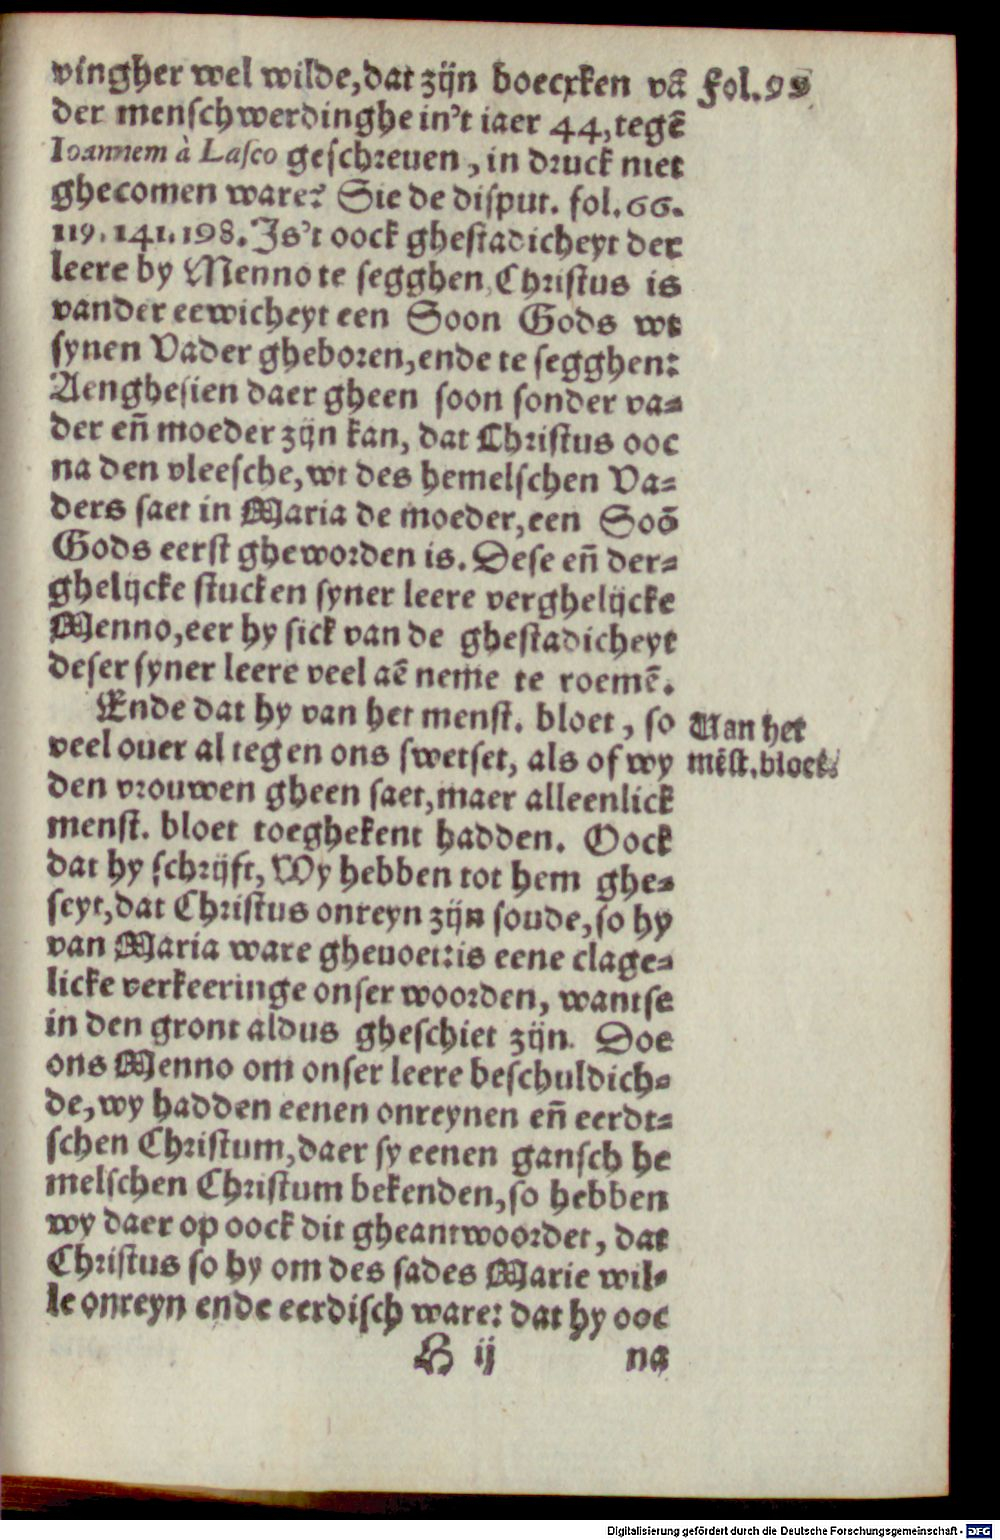 vingher wel wilde, dat zijn boecxken vā
Fol. 99
der menschwerdinghe in't iaer 44, tegē
Ioannem à Lasco geschreuen, in druck niet
ghecomen ware? Sie de disput. fol. 66.
119. 141. 198. Is't oock ghestadicheyt der
leere by Menno te segghen, Christus is
vander eewicheyt een Soon Gods wt
synen Vader gheboren, ende te segghen:
Aenghesien daer gheen soon sonder va-
der eñ moeder zijn kan, dat Christus ooc
na den vleesche, wt des hemelschen Va-
ders saet in Maria de moeder, een Soō
Gods eerst gheworden is. Dese eñ der-
ghelijcke stucken syner leere verghelijcke
Menno, eer hy sick van de ghestadicheyt
deser syner leere veel aē neme te roemē.
Ende dat hy van het menst. bloet, so
Van het
veel ouer al tegen ons swetset, als of wy
mēst. bloet.
den vrouwen gheen saet, maer alleenlick
menst. bloet toeghekent hadden. Oock
dat hy schrijft, Wy hebben tot hem ghe-
seyt, dat Christus onreyn zijn soude, so hy
van Maria ware gheuoet: is eene clage-
licke verkeeringe onser woorden, wantse
in den gront aldus gheschiet zijn. Doe
ons Menno om onser leere beschuldich-
de, wy hadden eenen onreynen eñ eerdt-
schen Christum, daer sy eenen gansch he
melschen Christum bekenden, so hebben
wy daer op oock dit gheantwoordet, dat
Christus so hy om des sades Marie wil-
le onreyn ende eerdisch ware: dat hy ooc
H ij
na
Digitalisierung gefördert durch die Deutsche Forschungsgemeinschaft - DFG